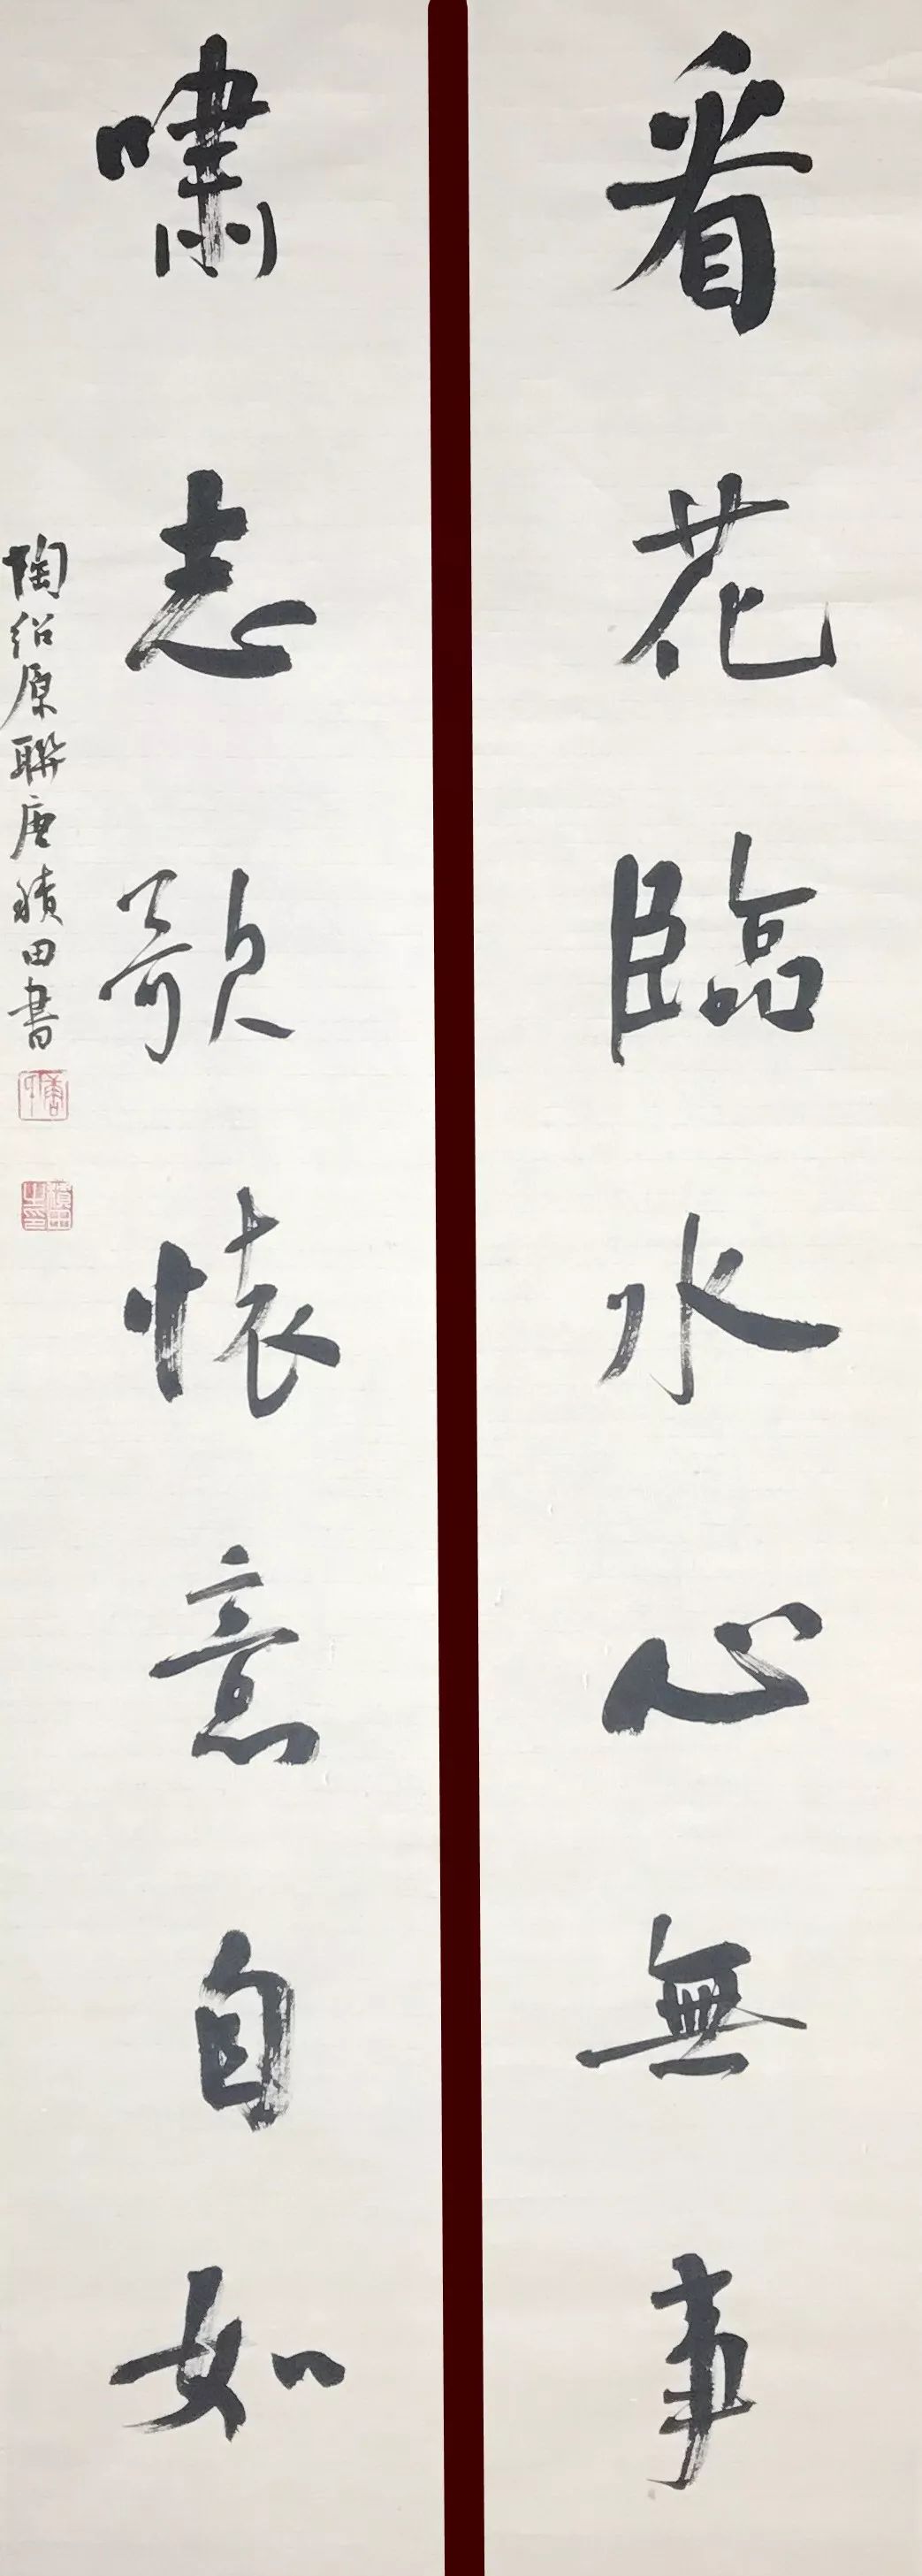 看花臨水心無事
嘯志歌懷意自如
陶紹原聯唐積田書